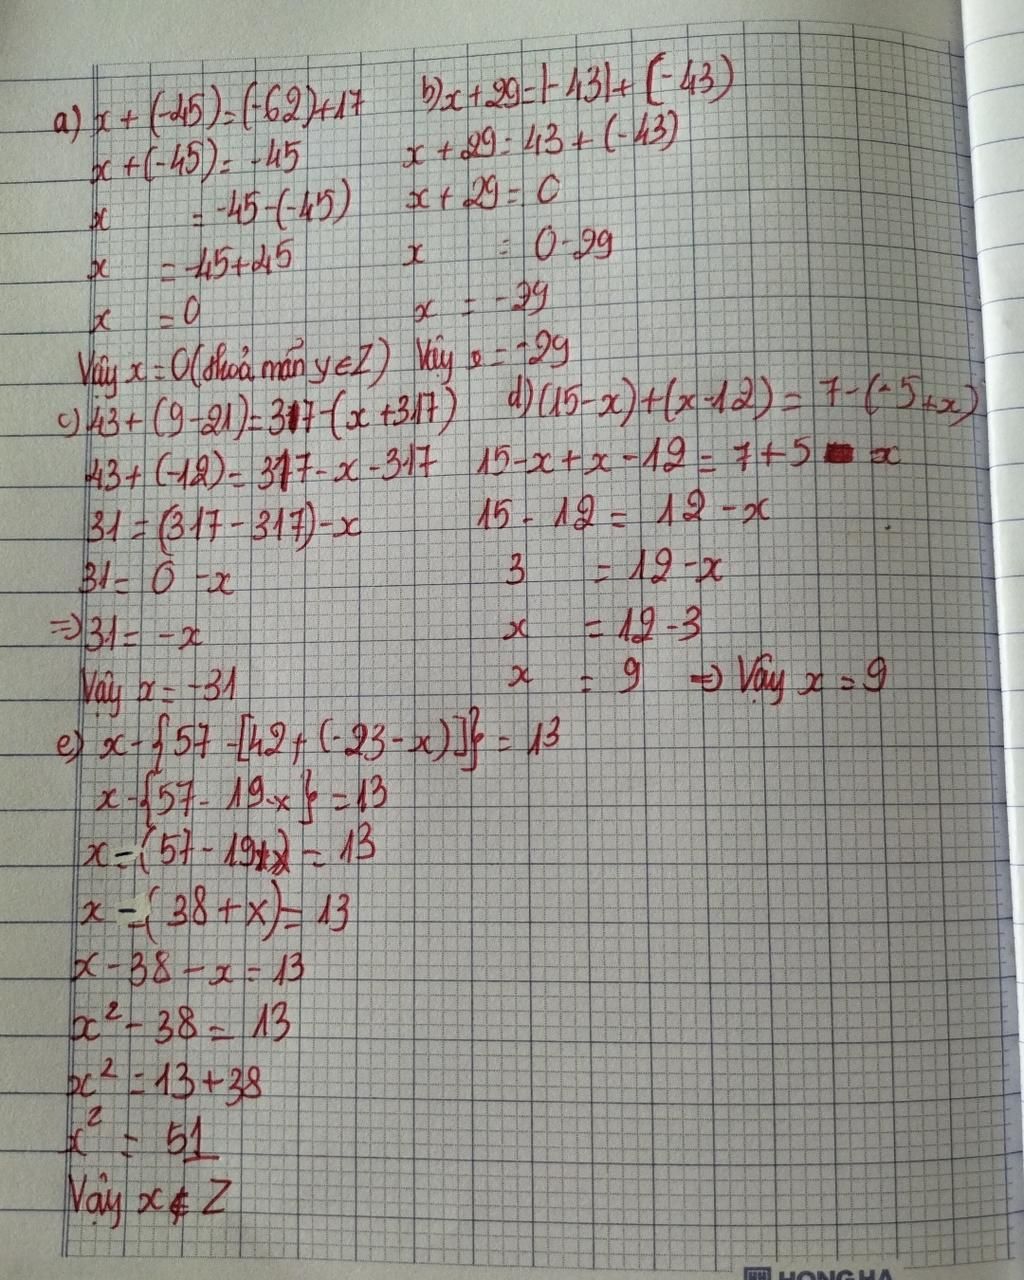 a) x + (-45) = (-62) + 17
x + (-45) = -45
x = -45 - (-45)
x = -45 + 45
x = 0
Vậy x = 0 (thoả mãn y ∈ Z)
b) x + 29 = |-43| + (-43)
x + 29 = 43 + (-43)
x + 29 = 0
x = 0 - 29
x = -29
Vậy x = -29
c) 43 + (9 - 21) = 317 - (x + 317)
43 + (-12) = 317 - x - 317
31 = (317 - 317) - x
31 = 0 - x
=> 31 = -x
Vậy x = -31
d) (15 - x) + (x - 12) = 7 - (-5 + x)
15 - x + x - 12 = 7 + 5 x
15 - 12 = 12 - x
3 = 12 - x
x = 12 - 3
x = 9 => Vậy x = 9
e) x - {57 - [42 + (-23 - x)]} = 13
x - {57 - 19 - x} = 13
x - (57 - 19 + x) = 13
x - (38 + x) = 13
x - 38 - x = 13
x² - 38 = 13
x² = 13 + 38
x² = 51
Vậy x ∉ Z
HONG HA